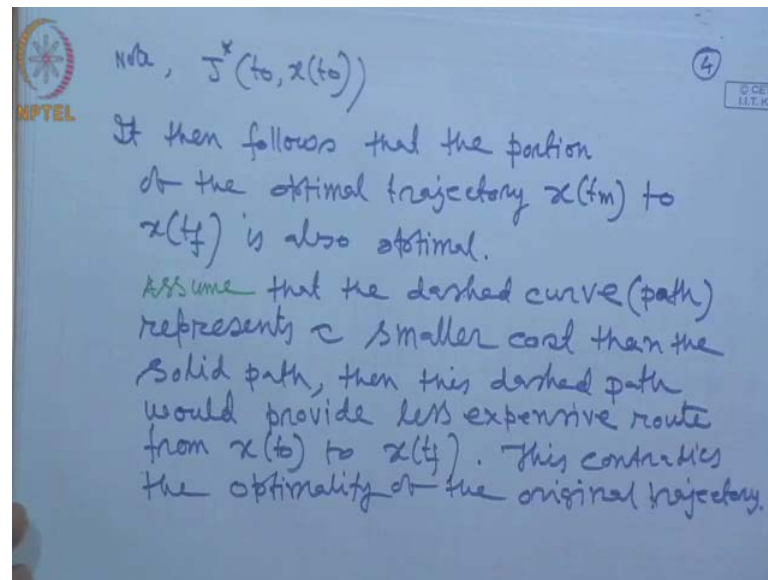 Note, J*(to, x(to))
4
© CET
I.I.T. K
NPTEL
It then follows that the portion
of the optimal trajectory x(tm) to
x(tf) is also optimal.
Assume that the dashed curve (path)
represents a smaller cost than the
solid path, then this dashed path
would provide less expensive route
from x(to) to x(tf). This contradics
the optimality of the original trajectory.